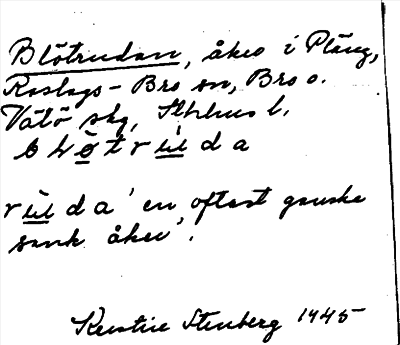 Blötrudan, åker i Pläng,
Roslags-Bro sn, Bro o.
Vätö skg, Sthlms l.
blötruda
ruda 'en oftast ganska
sank åker'.
Kerstin Stenberg 1945